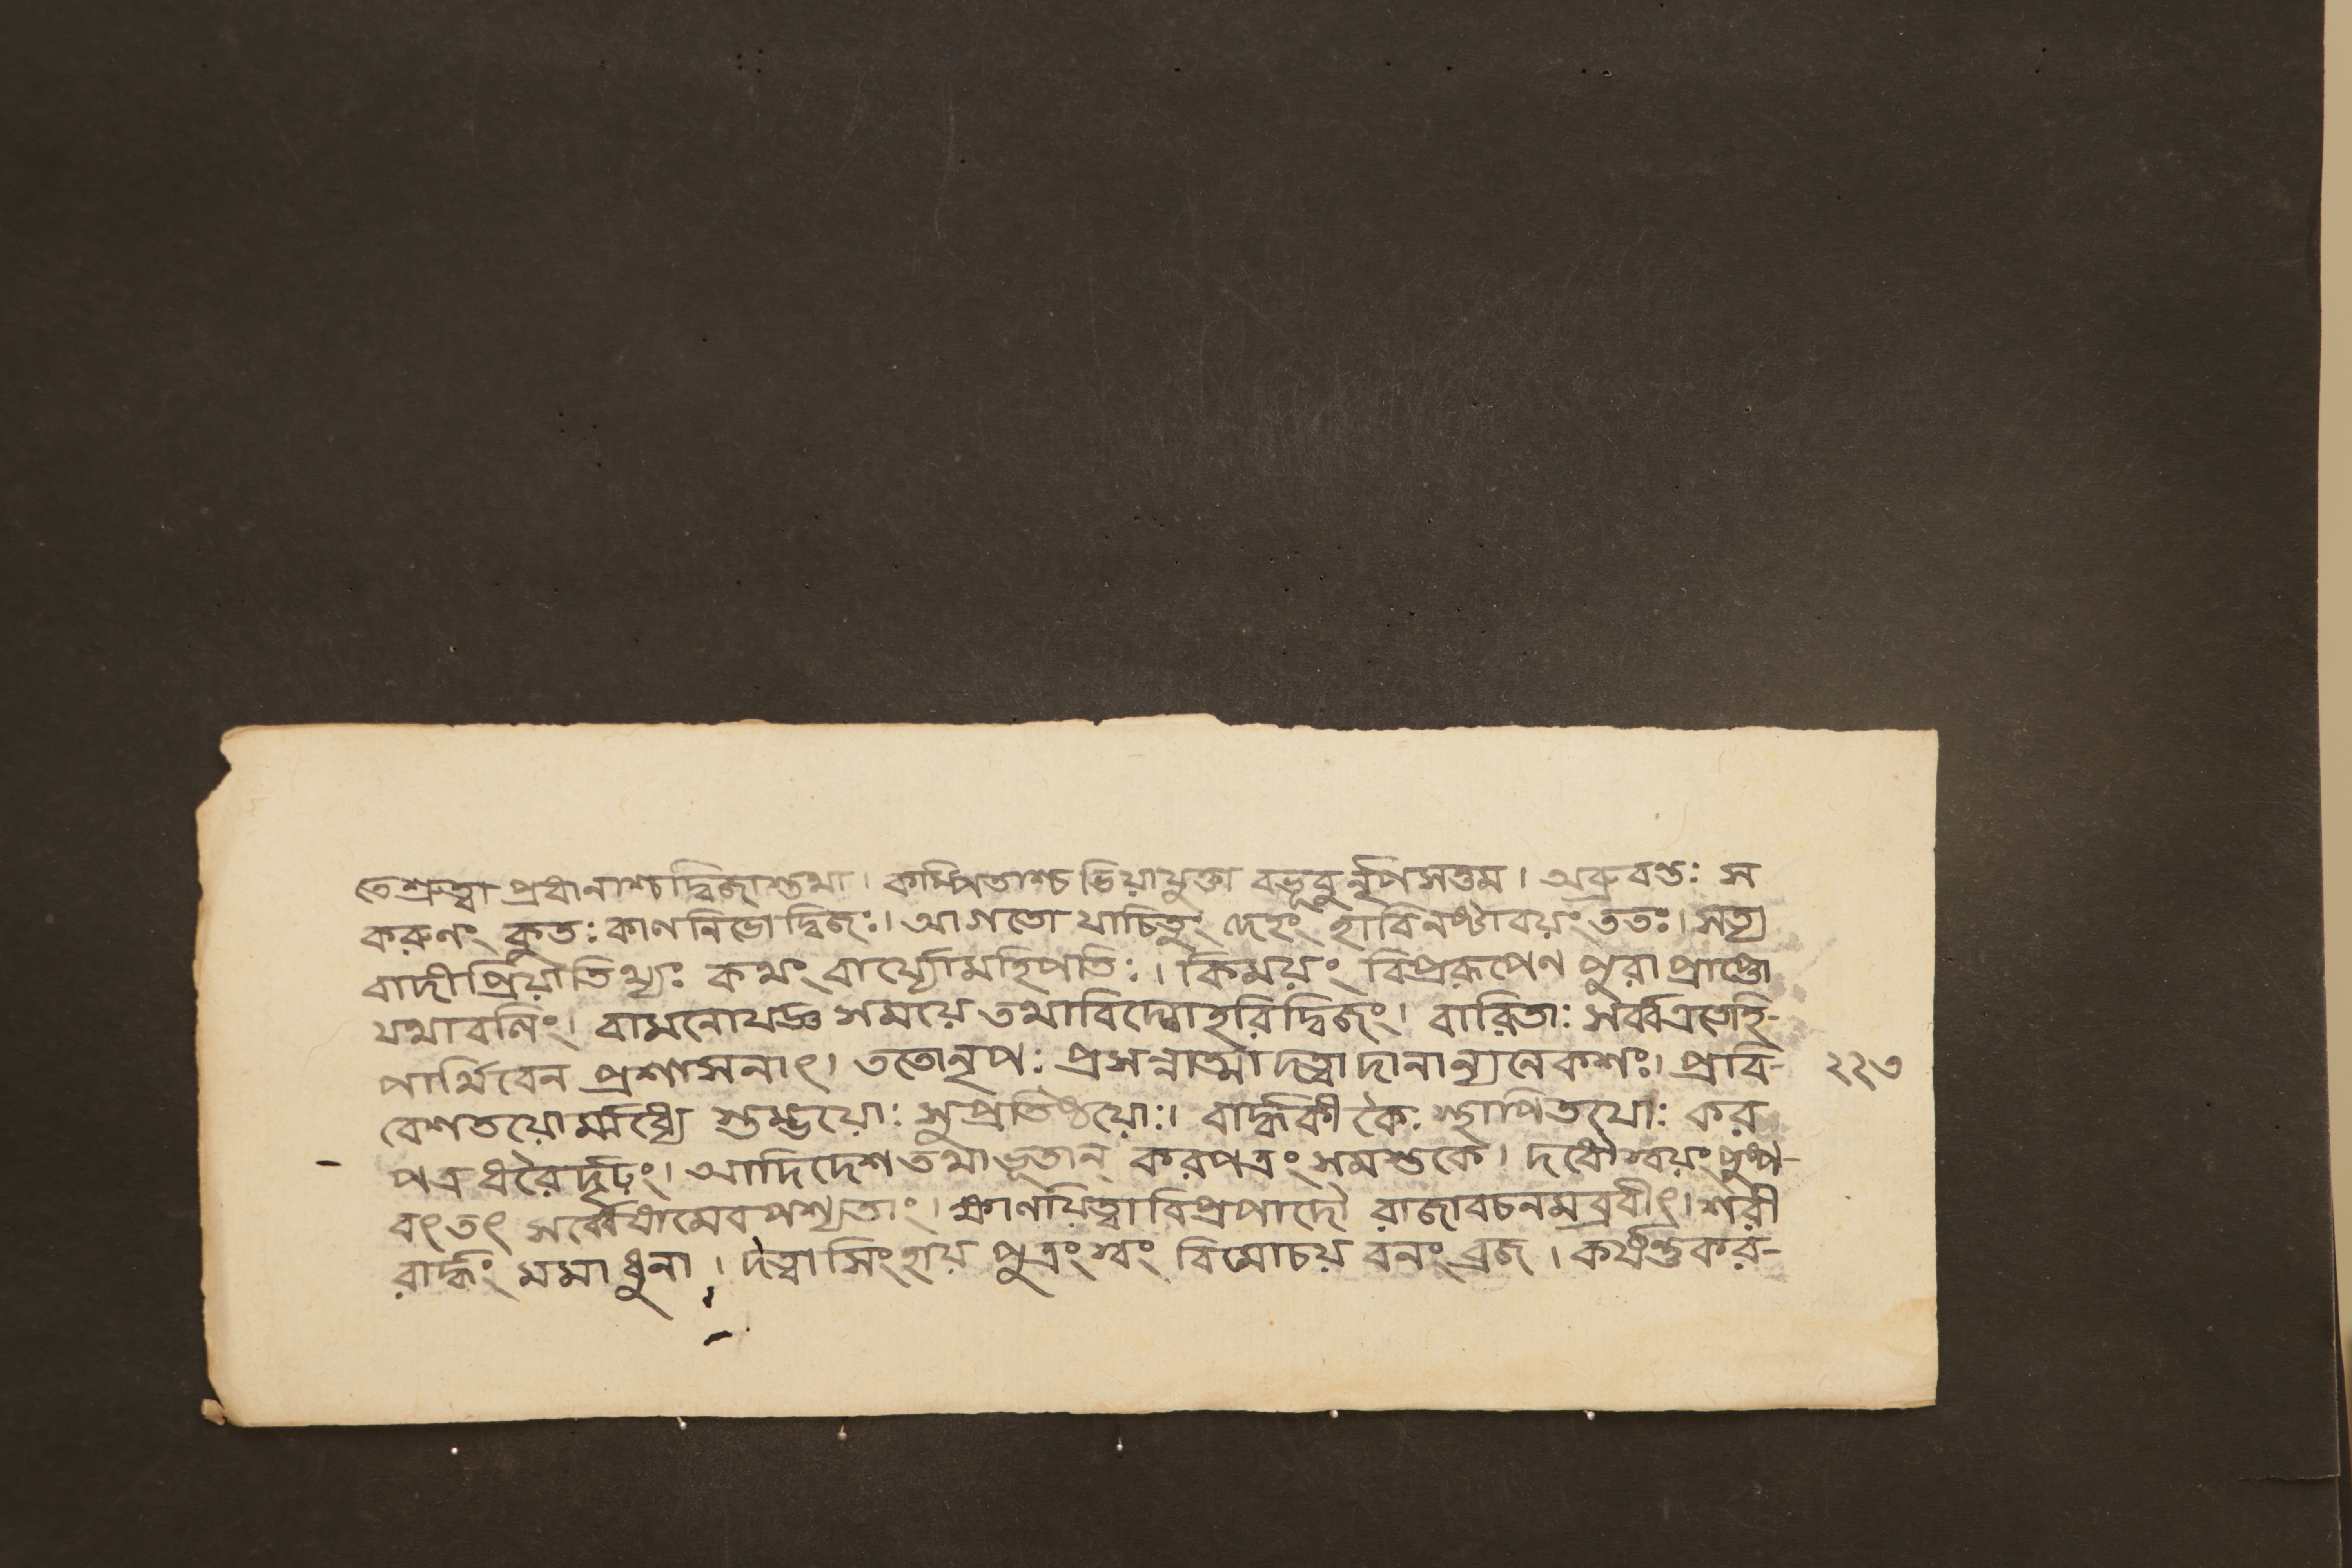 তে শ্রুত্বা প্রধানাশ্চ দ্বিজাস্তথা । কম্পিতাশ্চ ভিয়াযুক্তা বভূবুর্নৃপসত্তম । অব্রুবন্তঃ স
করুণং কুতঃ কালনিভো দ্বিজঃ । আগতো যাচিতুং দেহং হা বিনষ্টাবয়ং ততঃ । সত্য
বাদী প্রিয়াতিথ্যঃ কথং বার্য্যো মহিপতিঃ । কিময়ং বিপ্ররূপেণ পুরা প্রাপ্তো
যথা বলিং । বামনো যজ্ঞসময়ে তথাবিদ্ধোহরিদ্বিজং । বারিতাঃ সর্ব্বত্রতেহি-
পার্থিবেন প্রশাসনাৎ । ততো নৃপঃ প্রসন্নাত্মা দত্বা দানান্যনেকশঃ । প্রাবি-
বেশ তয়োর্ম্মধ্যে স্তম্ভয়োঃ সুপ্রতিষ্ঠয়োঃ । বার্দ্ধকীকৈঃ স্থাপিতয়োঃ কর
পত্রধরৈর্দৃঢ়ং । আদিদেশ তথা ভূতান্ করপত্রং সমস্তকে । দধৌ স্বয়ং পুষ্প-
বৎ তৎ সর্ব্বেষামেব পশ্যতাং । ক্ষালয়িত্বা বিপ্রপাদৌ রাজা বচনমব্রবীৎ । শরী
রার্দ্ধং মমাধুনা । দত্বা সিংহায় পুত্রং স্বং বিমোচয় বনং ব্রজ । কর্ষন্তু কর-
২২৩